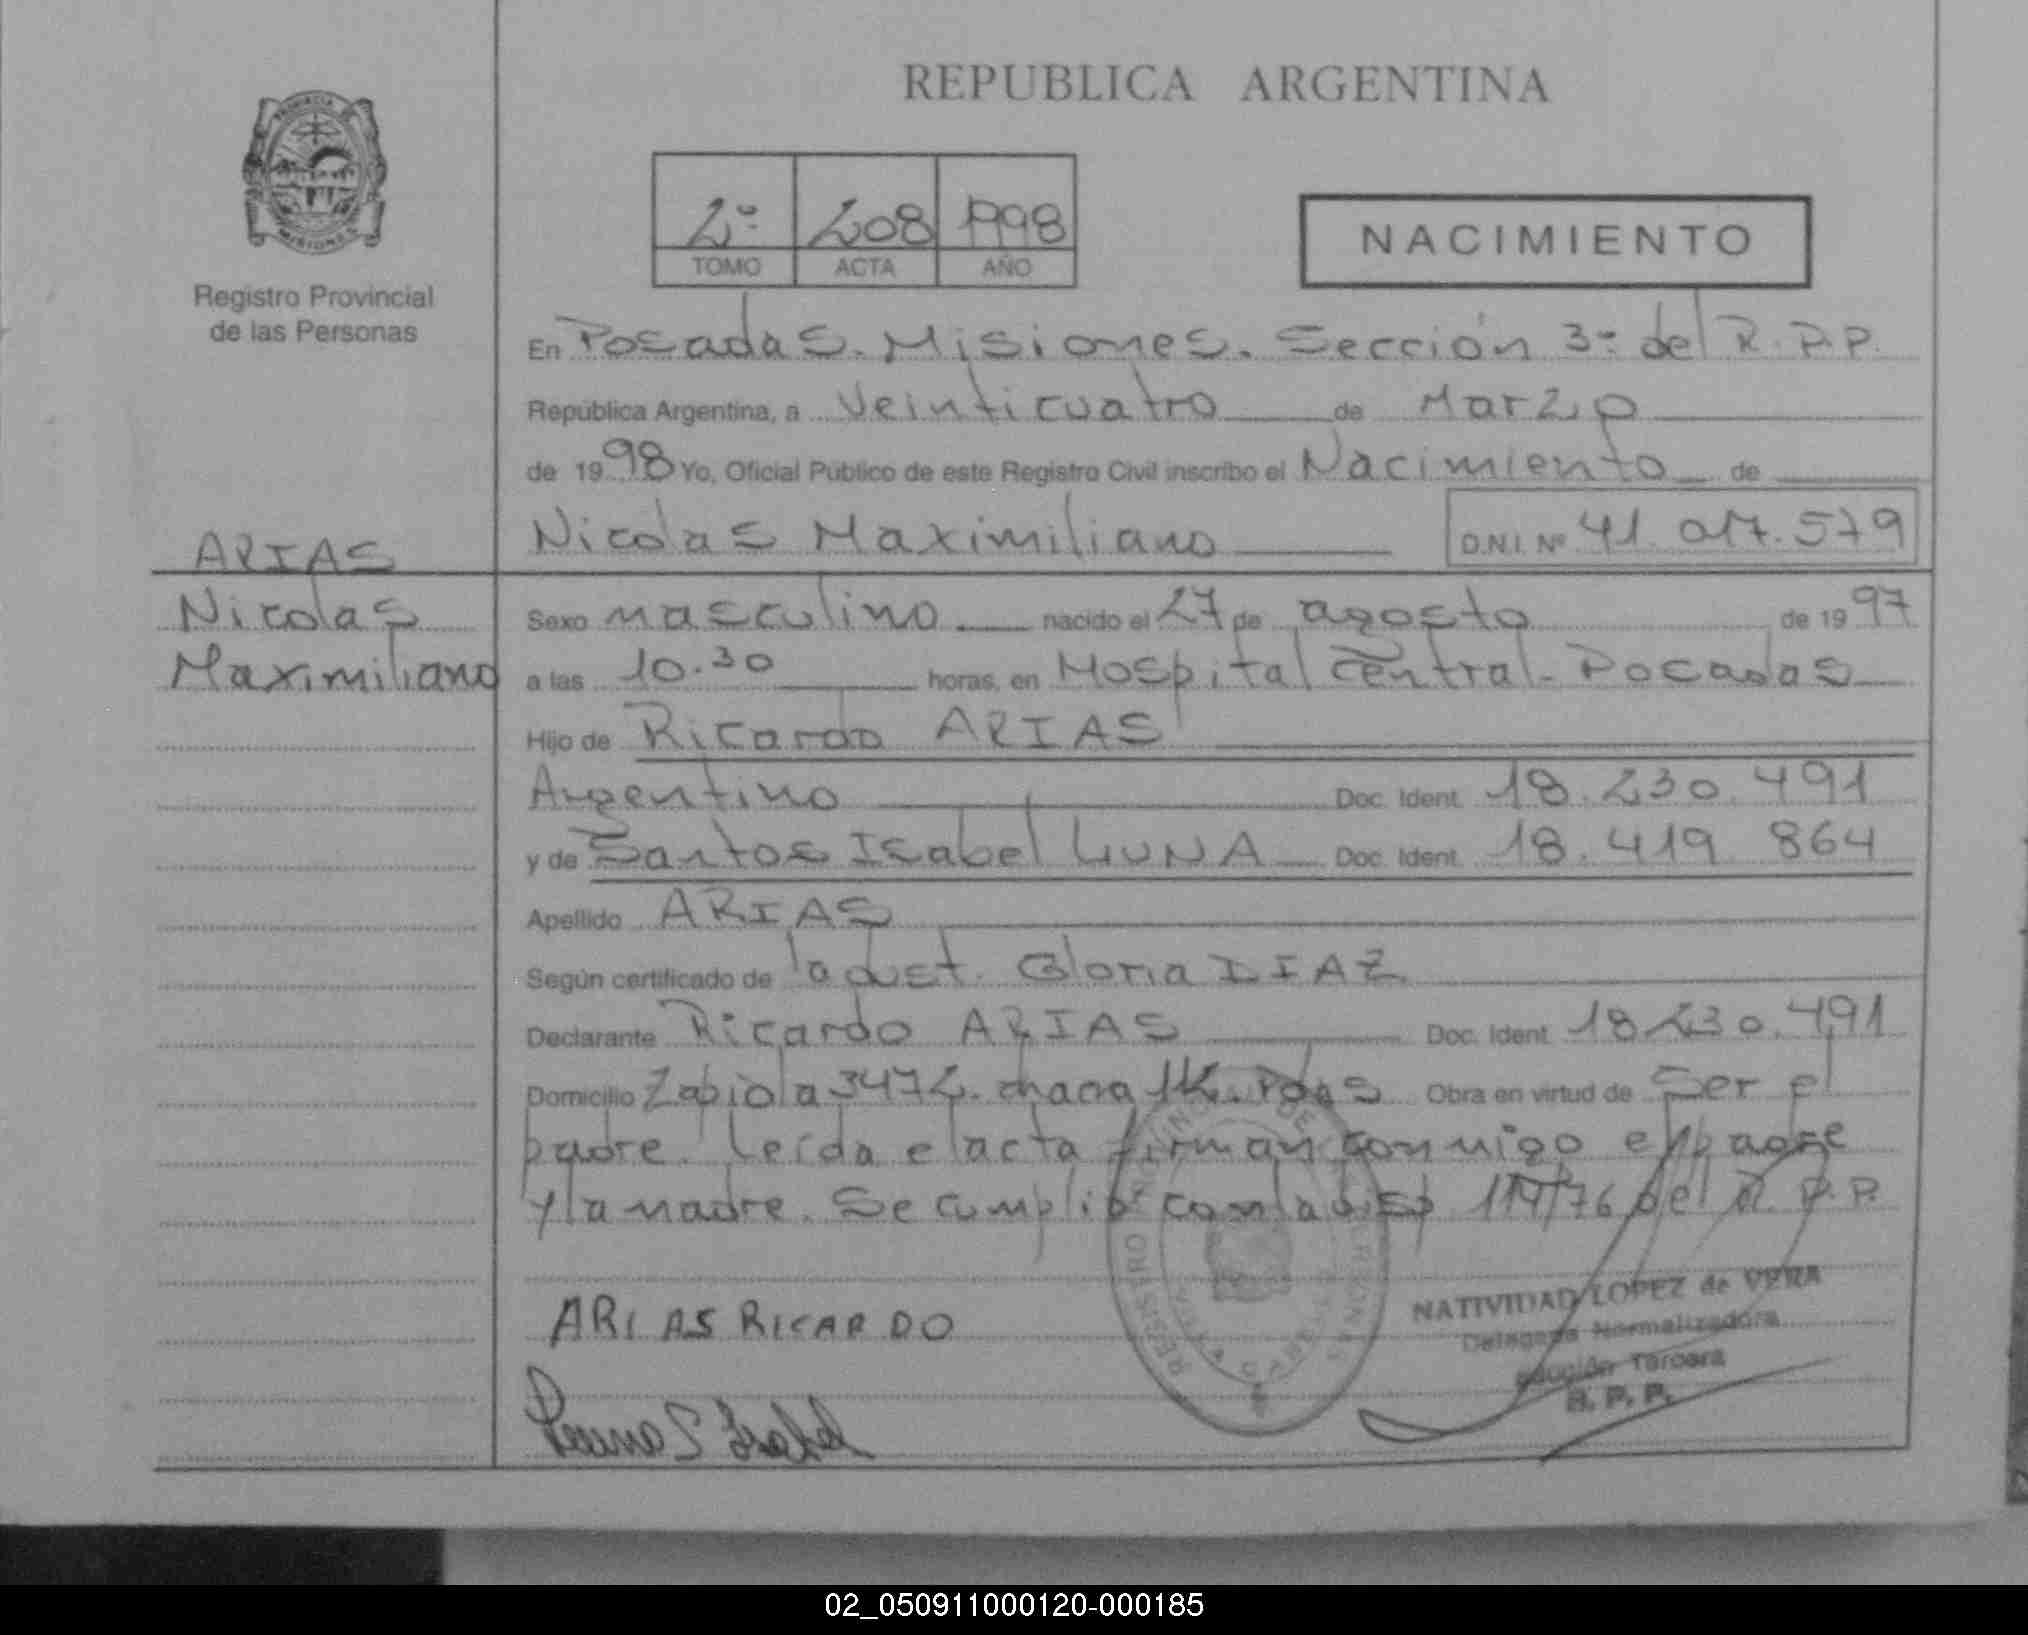 REPUBLICA ARGENTINA
PROVINCIA
MISIONES
Registro Provincial
de las Personas
2º 208 1998
TOMO ACTA AÑO
NACIMIENTO
En Posadas. Misiones. Sección 3º del R.P.P.
República Argentina, a Veinticuatro de Marzo
de 1998 Yo, Oficial Público de este Registro Civil inscribo el Nacimiento de
Nicolas Maximiliano D.N.I. Nº 41.017.579
ARIAS
Nicolas
Maximiliano
Sexo masculino nacido el 27 de agosto de 1997
a las 10.30 horas, en Hospital Central - Posadas
Hijo de Ricardo ARIAS
Argentino Doc. Ident. 18.230.491
y de Santos Isabel LUNA Doc. Ident. 18.419 864
Apellido ARIAS
Según certificado de la Gloria DIAZ
Declarante Ricardo ARIAS Doc. Ident. 18 230.491
Domicilio Zapiola 3472. Obra en virtud de Ser el
padre. Leída el acta firman conmigo el padre
y la madre. Se cumplió con la disp 114/76 del R.P.P.
ARIAS RICARDO
NATIVIDAD LOPEZ de VERA
Delegada Normalizadora
Sección Tercera
R. P. P.
Luna S Isabel
02_050911000120-000185